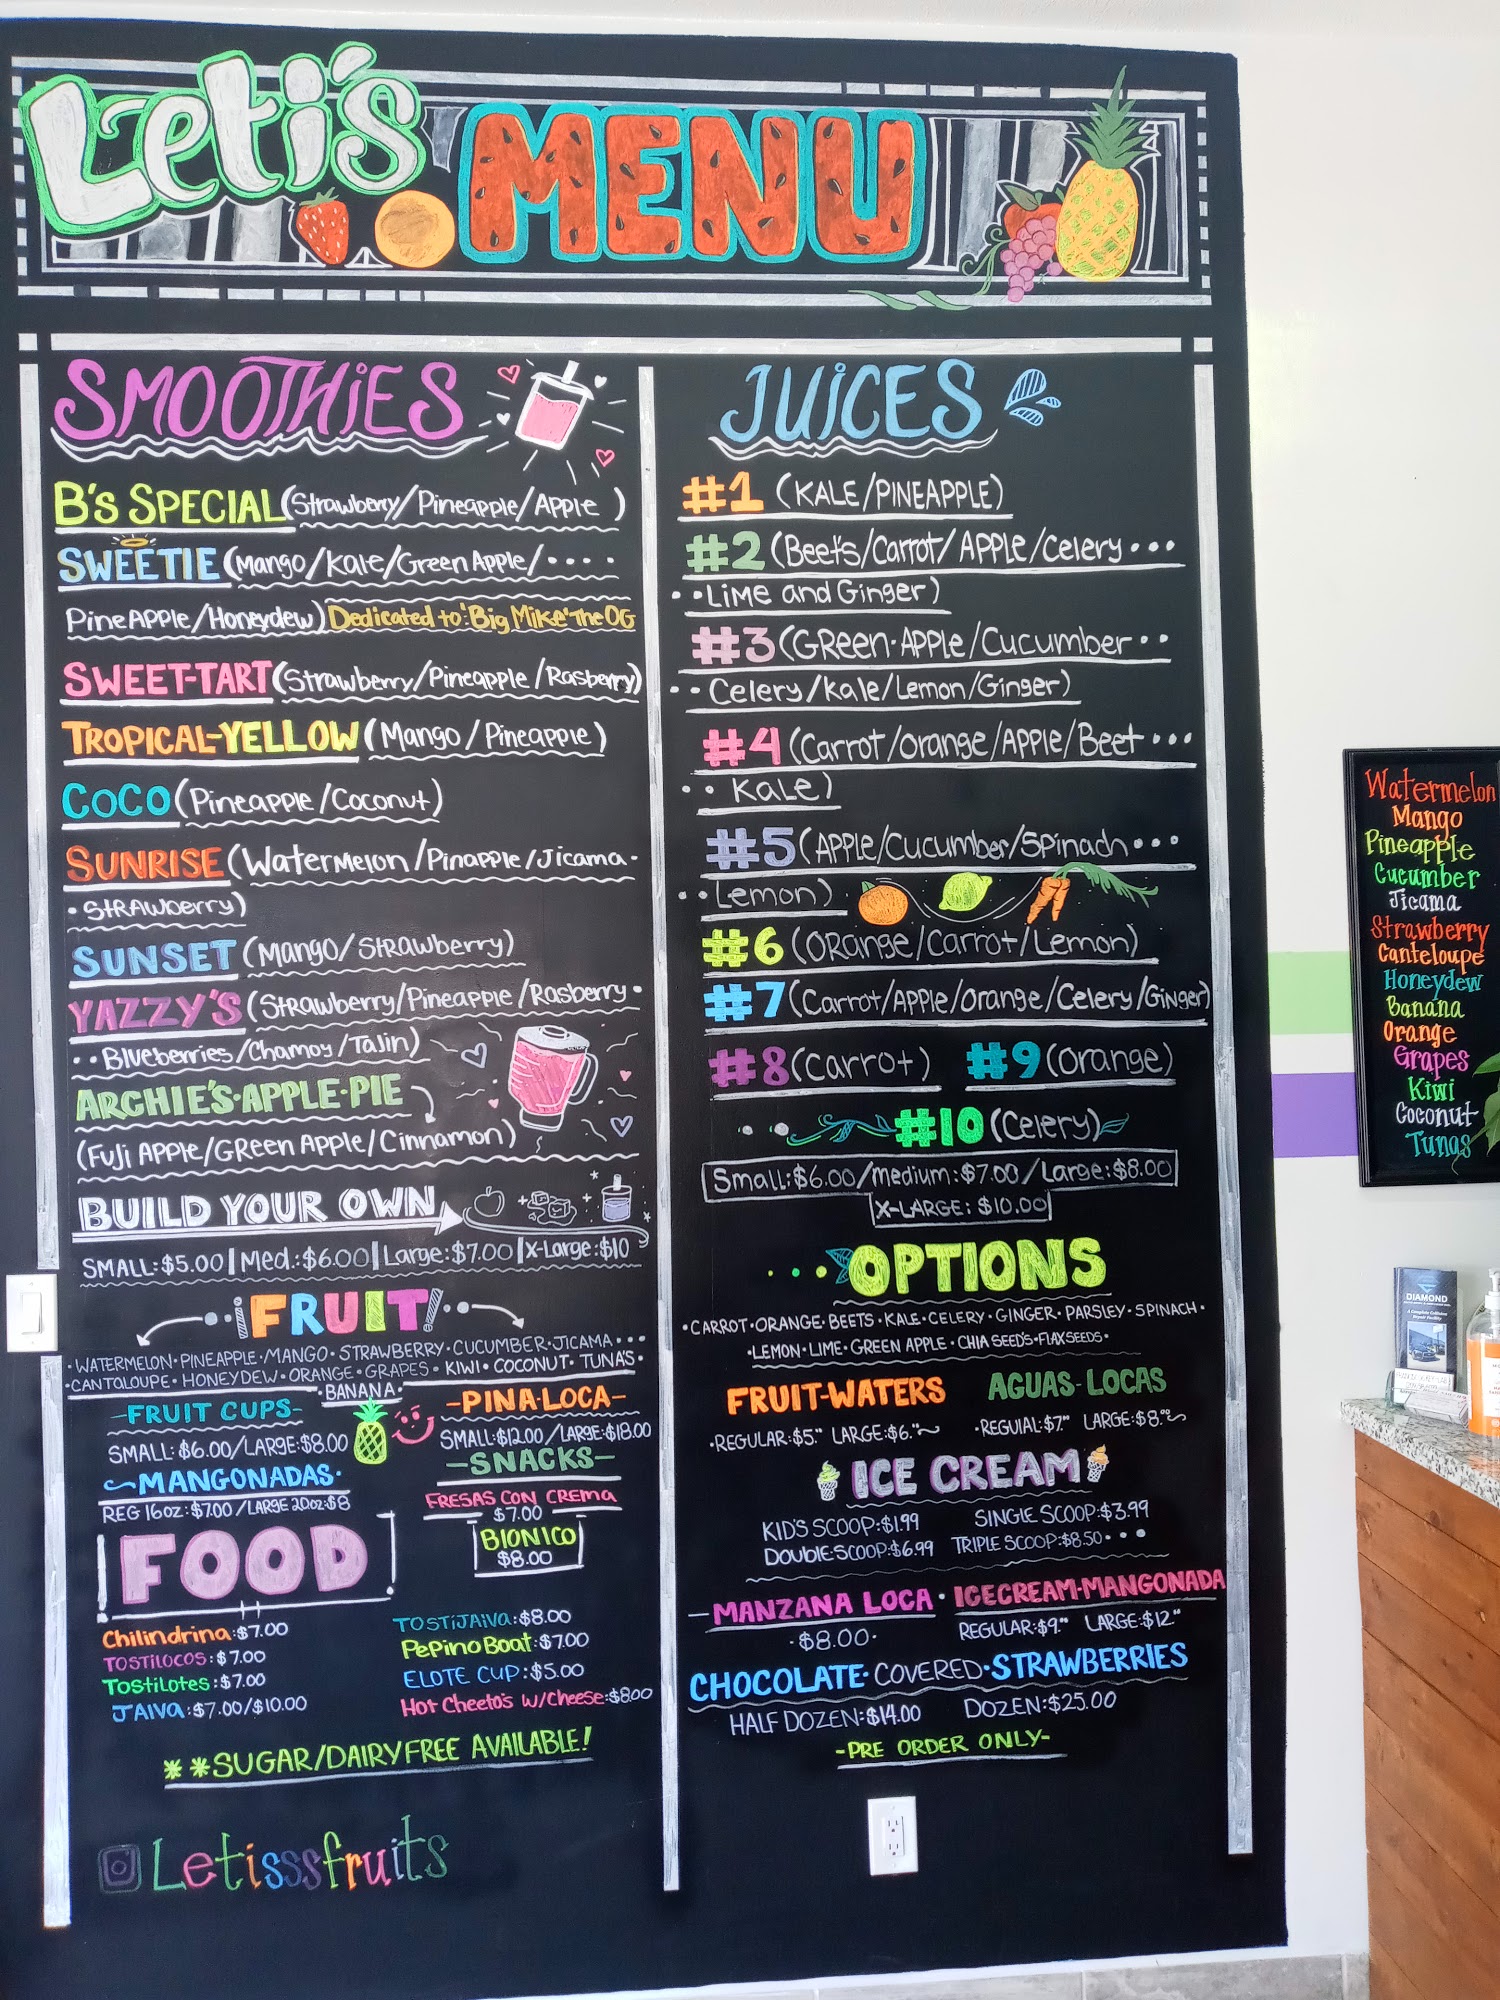 Leti's MENU
SMOOTHiES
B's SPECIAL (Strawberry/Pineapple/Apple )
SWEETIE (Mango/Kale/Green Apple/····
PineAPPle/Honeydew) Dedicated to 'Big Mike' The OG
SWEET-TART (Strawberry/Pineapple/Rasberry)
TROPICAL-YELLOW (Mango/Pineapple)
COCO (Pineapple/Coconut)
SUNRISE (Watermelon/Pinapple/Jicama·
·Strawberry)
SUNSET (Mango/Strawberry)
YAZZY'S (Strawberry/Pineapple/Rasberry·
··Blueberries/Chamoy/Tajin)
ARCHIE'S·APPLE·PIE
(Fuji Apple/Green Apple/Cinnamon)
BUILD YOUR OWN
SMALL:$5.00|Med.:$6.00|Large:$7.00|X-Large:$10
¡FRUIT!
·WATERMELON·PINEAPPLE·MANGO·STRAWBERRY·CUCUMBER·JICAMA···
·CANTOLOUPE·HONEYDEW·ORANGE·GRAPES·KIWI·COCONUT·TUNA'S·
·BANANA·
-FRUIT CUPS-
SMALL:$6.00/LARGE:$8.00
-PINA·LOCA-
SMALL:$12.00/LARGE:$18.00
MANGONADAS·
REG 16oz:$7.00/LARGE 20oz:$8
-SNACKS-
FRESAS CON CREMA
$7.00
BIONICO
$8.00
FOOD
Chilindrina:$7.00
TOSTILOCOS:$7.00
Tostilotes:$7.00
JAIVA:$7.00/$10.00
TOSTIJAIVA:$8.00
PePino Boat:$7.00
ELOTE CUP:$5.00
Hot Cheeto's w/Cheese:$8.00
**SUGAR/DAIRY FREE AVAILABLE!
Letisssfruits
JUiCES
#1 (KALE/PINEAPPLE)
#2 (Beets/Carrot/APPLE/Celery···
··Lime and Ginger)
#3 (Green·Apple/Cucumber··
··Celery/Kale/Lemon/Ginger)
#4 (Carrot/Orange/Apple/Beet···
··Kale)
#5 (APPLE/Cucumber/Spinach···
··Lemon)
#6 (Orange/Carrot/Lemon)
#7 (Carrot/Apple/Orange/Celery/Ginger)
#8 (Carrot) #9 (Orange)
#10 (Celery)
Small:$6.00/medium:$7.00/Large:$8.00
X-LARGE: $10.00
···OPTIONS
·CARROT·ORANGE·BEETS·KALE·CELERY·GINGER·PARSLEY·SPINACH·
·LEMON·LIME·GREEN APPLE·CHIA SEEDS·FLAXSEEDS·
FRUIT-WATERS
·REGULAR:$5.00 LARGE:$6.00
AGUAS-LOCAS
·REGULAR:$7.00 LARGE:$8.00
ICE CREAM
KID'S SCOOP:$1.99 SINGLE SCOOP:$3.99
DOUBLE·SCOOP:$6.99 TRIPLE SCOOP:$8.50···
-MANZANA LOCA·
·$8.00·
ICECREAM-MANGONADA
REGULAR:$9.00 LARGE:$12.00
CHOCOLATE·COVERED·STRAWBERRIES
HALF DOZEN:$14.00 DOZEN:$25.00
-PRE ORDER ONLY-
Watermelon
Mango
Pineapple
Cucumber
Jicama
Strawberry
Canteloupe
Honeydew
Banana
Orange
Grapes
Kiwi
Coconut
Tunas
DIAMOND
A Complete Collision
Repair Facility